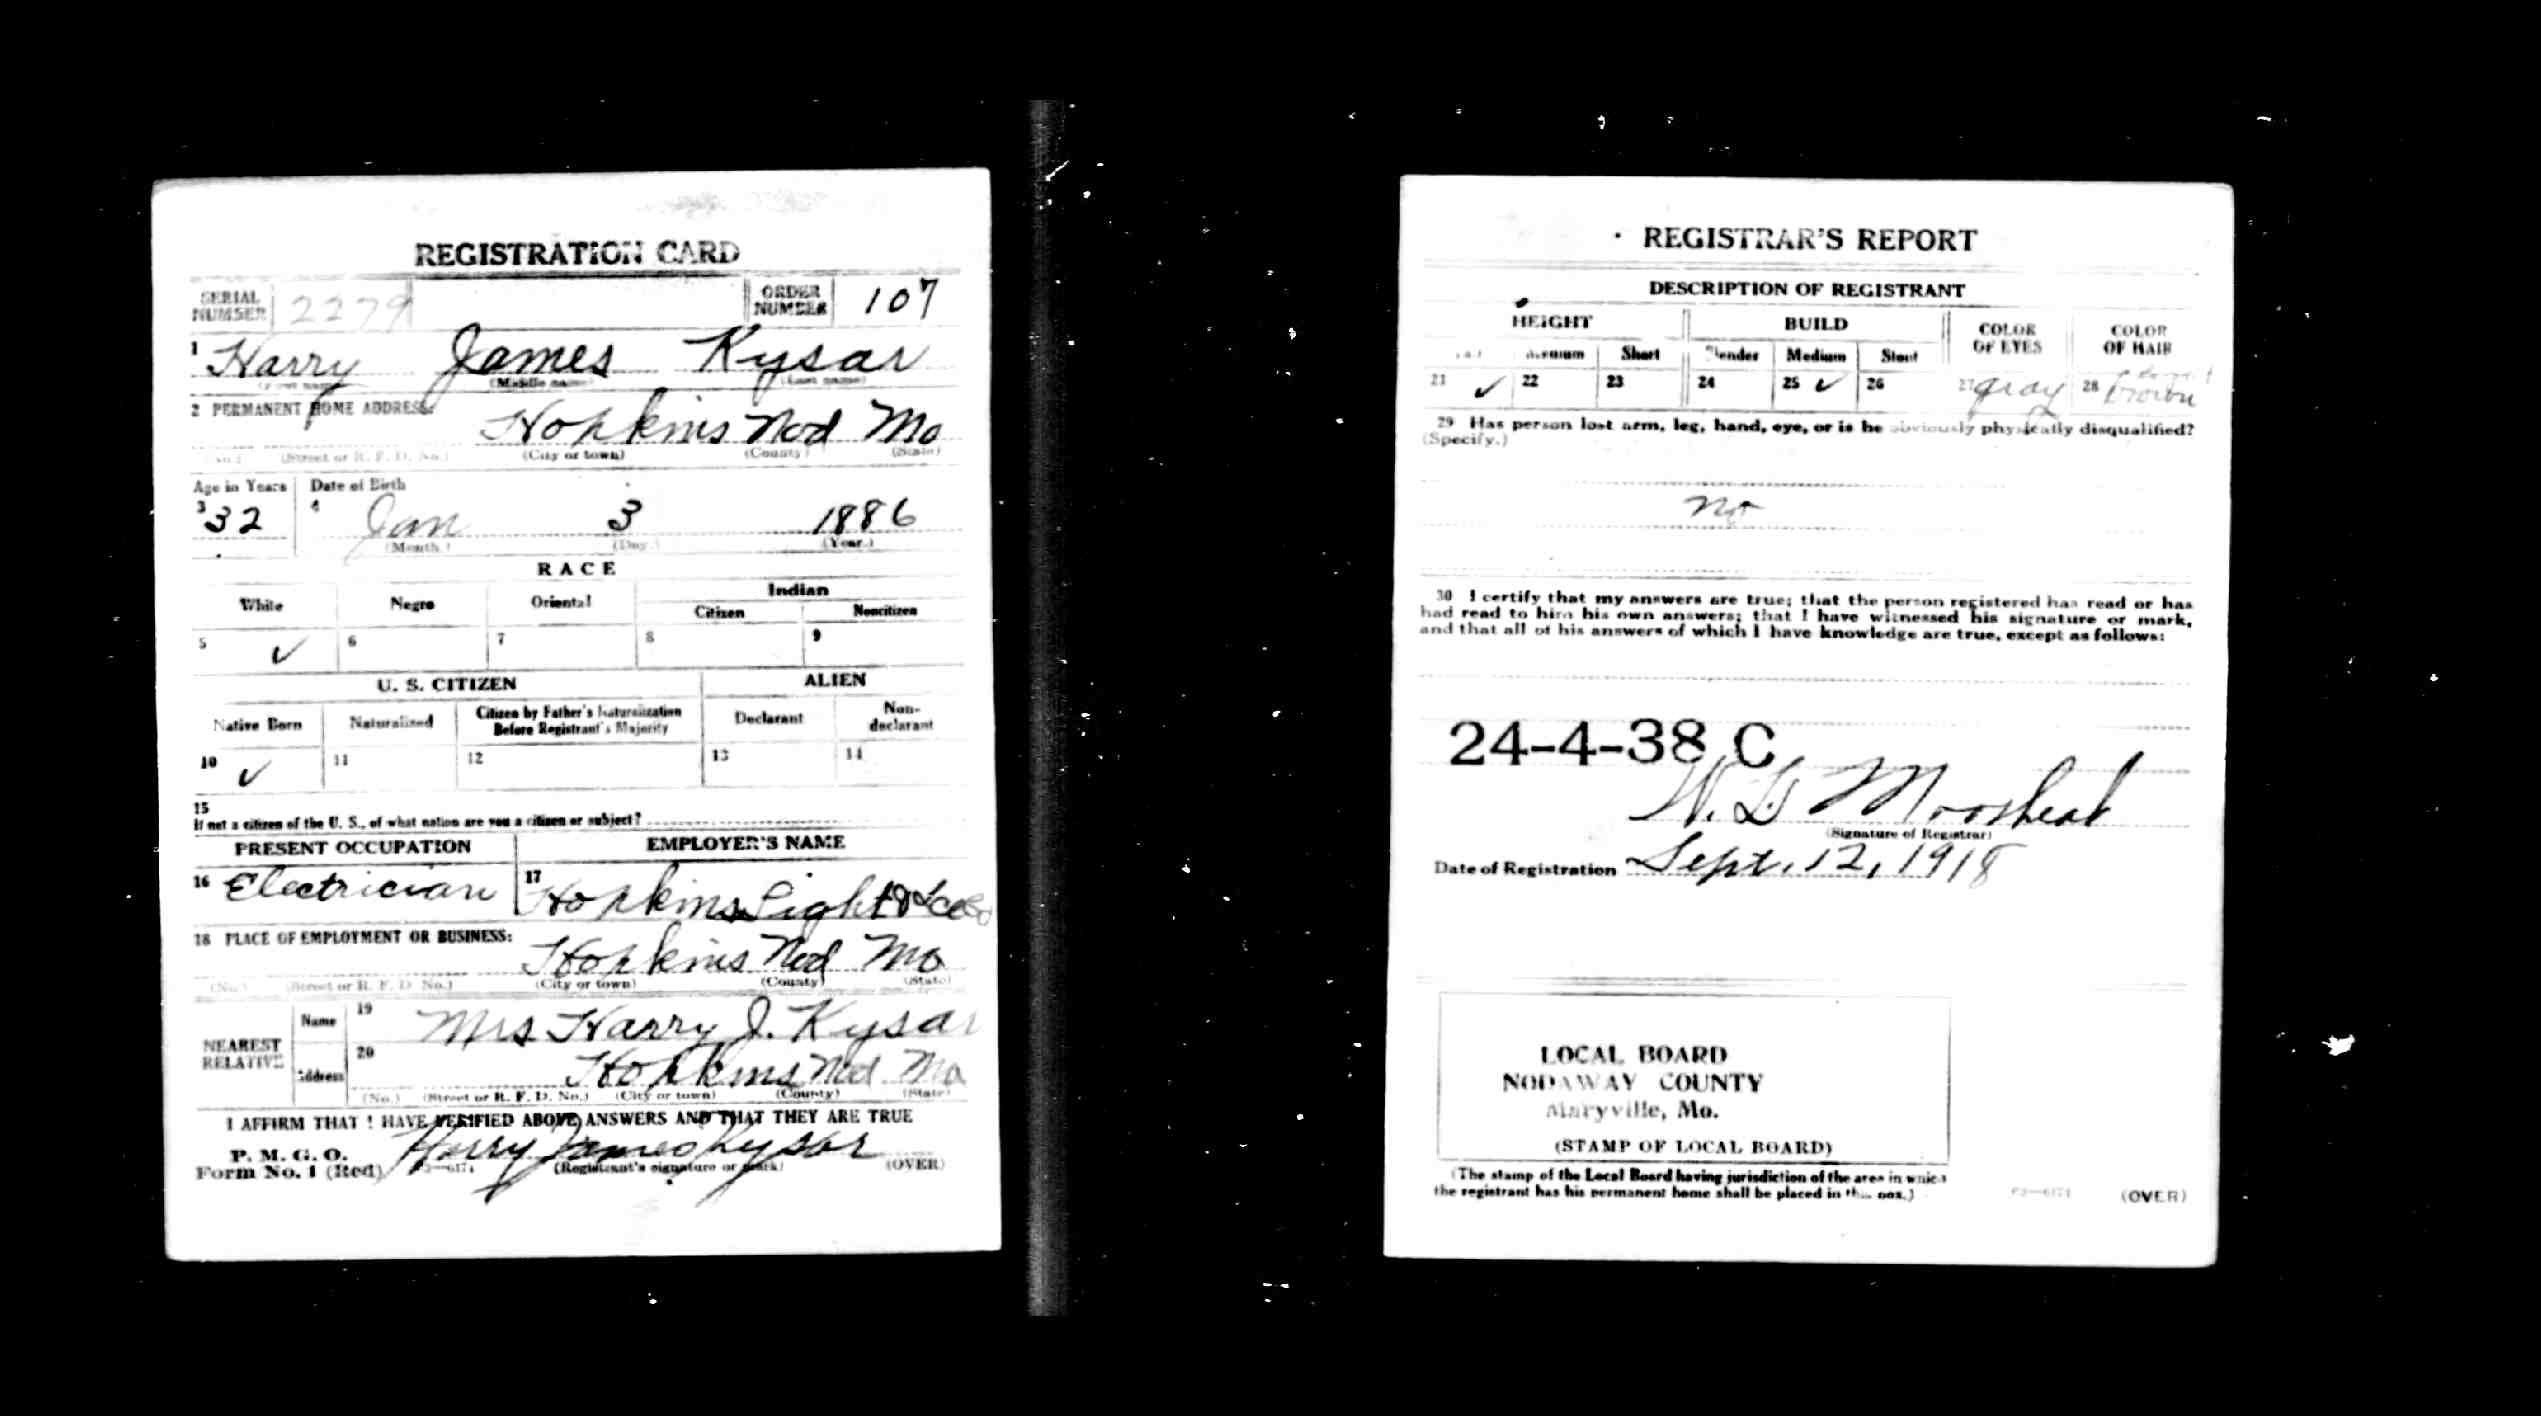 REGISTRATION CARD
SERIAL NUMBER 2279 ORDER NUMBER 107
1 Harry James Kysar
(First name) (Middle name) (Last name)
2 PERMANENT HOME ADDRESS:
Hopkins Nod Mo
(No.) (Street or R. F. D. No.) (City or town) (County) (State)
Age in Years Date of Birth
3 32 4 Jan 3 1886
(Month.) (Day.) (Year.)
RACE
White Negro Oriental Indian
Citizen Noncitizen
5 ✓ 6 7 8 9
U. S. CITIZEN ALIEN
Native Born Naturalized Citizen by Father's Naturalization Before Registrant's Majority Declarant Non-declarant
10 ✓ 11 12 13 14
15
If not a citizen of the U. S., of what nation are you a citizen or subject?
PRESENT OCCUPATION EMPLOYER'S NAME
16 Electrician 17 Hopkins Light &
18 PLACE OF EMPLOYMENT OR BUSINESS:
Hopkins Nod Mo
(No.) (Street or R. F. D. No.) (City or town) (County) (State)
NEAREST RELATIVE
Name 19 Mrs Harry J. Kysar
Address 20 Hopkins Nod Mo
(No.) (Street or R. F. D. No.) (City or town) (County) (State)
I AFFIRM THAT I HAVE VERIFIED ABOVE ANSWERS AND THAT THEY ARE TRUE
P. M. G. O.
Form No. 1 (Red) Harry James Kysar
(Registrant's signature or mark) (OVER)
REGISTRAR'S REPORT
DESCRIPTION OF REGISTRANT
HEIGHT BUILD COLOR OF EYES COLOR OF HAIR
Tall Medium Short Slender Medium Stout
21 ✓ 22 23 24 25 ✓ 26 27 gray 28 brown
29 Has person lost arm, leg, hand, eye, or is he obviously physically disqualified?
(Specify.)
no
30 I certify that my answers are true; that the person registered has read or has
had read to him his own answers; that I have witnessed his signature or mark,
and that all of his answers of which I have knowledge are true, except as follows:
24-4-38 C
W. G Moorhead
(Signature of Registrar)
Date of Registration Sept. 12, 1918
LOCAL BOARD
NODAWAY COUNTY
Maryville, Mo.
(STAMP OF LOCAL BOARD)
(The stamp of the Local Board having jurisdiction of the area in which
the registrant has his permanent home shall be placed in this box.)
03—6171 (OVER)